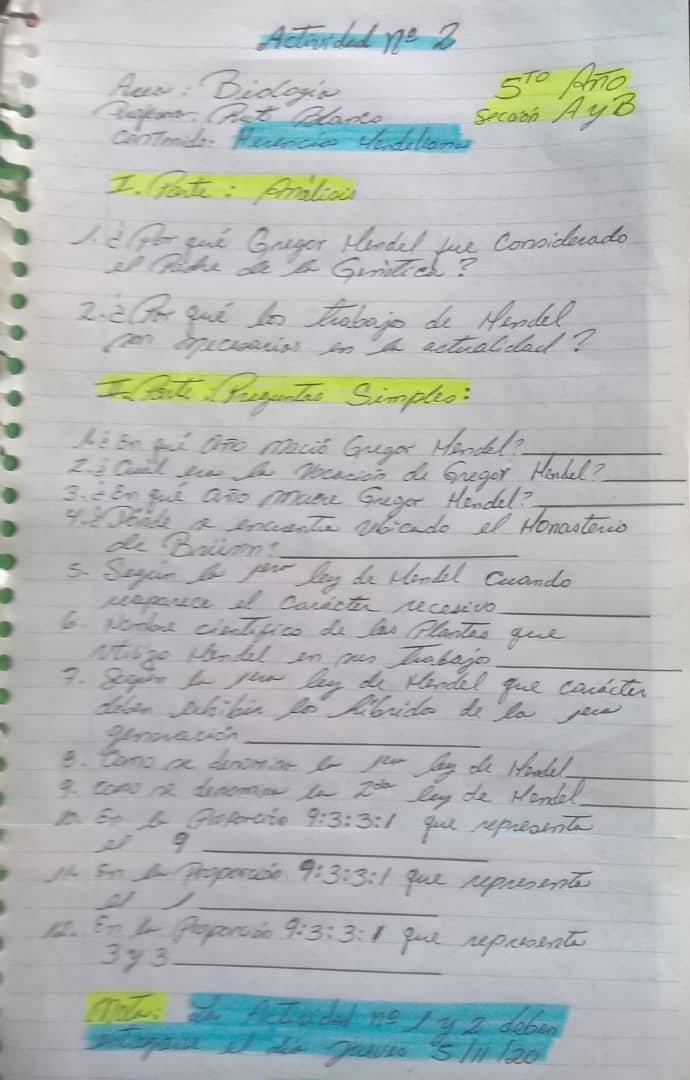 Actividad nº 2
Area: Biología
5TO Año
Profesora: Rut Blanco
Sección A y B
Contenido: Herencias Mendelianas
I. Parte: Análisis
1. ¿Por qué Gregor Mendel fue considerado
el Padre de la Genética?
2. ¿Por qué los trabajos de Mendel
son necesarios en la actualidad?
I. Parte. Preguntas Simples:
1. ¿En qué año nació Gregor Mendel?
2. ¿Cuál era la Vocación de Gregor Mendel?
3. ¿En qué año muere Gregor Mendel?
4. ¿Dónde se encuentra ubicado el Monasterio
de Brünn?
5. Según la 1era ley de Mendel Cuando
reaparece el carácter recesivo
6. Nombre científico de las Plantas que
utilizo Mendel en sus trabajos
7. Según la 1era ley de Mendel que carácter
deben exhibir los híbridos de la 1era
generación
8. Como se denomina la 1era ley de Mendel
9. Como se denomina la 2da ley de Mendel
10. En la Proporción 9:3:3:1 que representa
el 9
11. En la Proporción 9:3:3:1 que representa
el 1
12. En la Proporción 9:3:3:1 que representa
3 y 3
Nota: La Actividad nº 1 y 2 deben
entregarse el día jueves 5/11/20